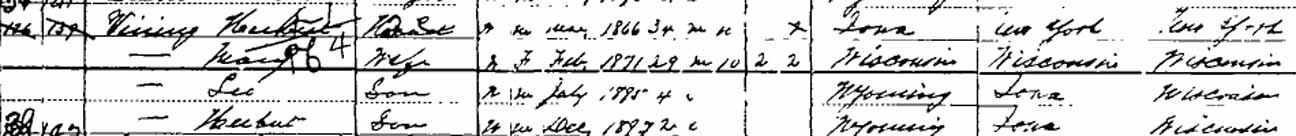 Vining Herbert Head W M Mar 1866 34 M Iowa New York New York
— Mary Wife W F Feb 1871 29 M 10 2 2 Wisconsin Wisconsin Wisconsin
— Leo Son W M July 1895 4 S Wyoming Iowa Wisconsin
— Herbert Son W M Dec 1897 2 S Wyoming Iowa Wisconsin